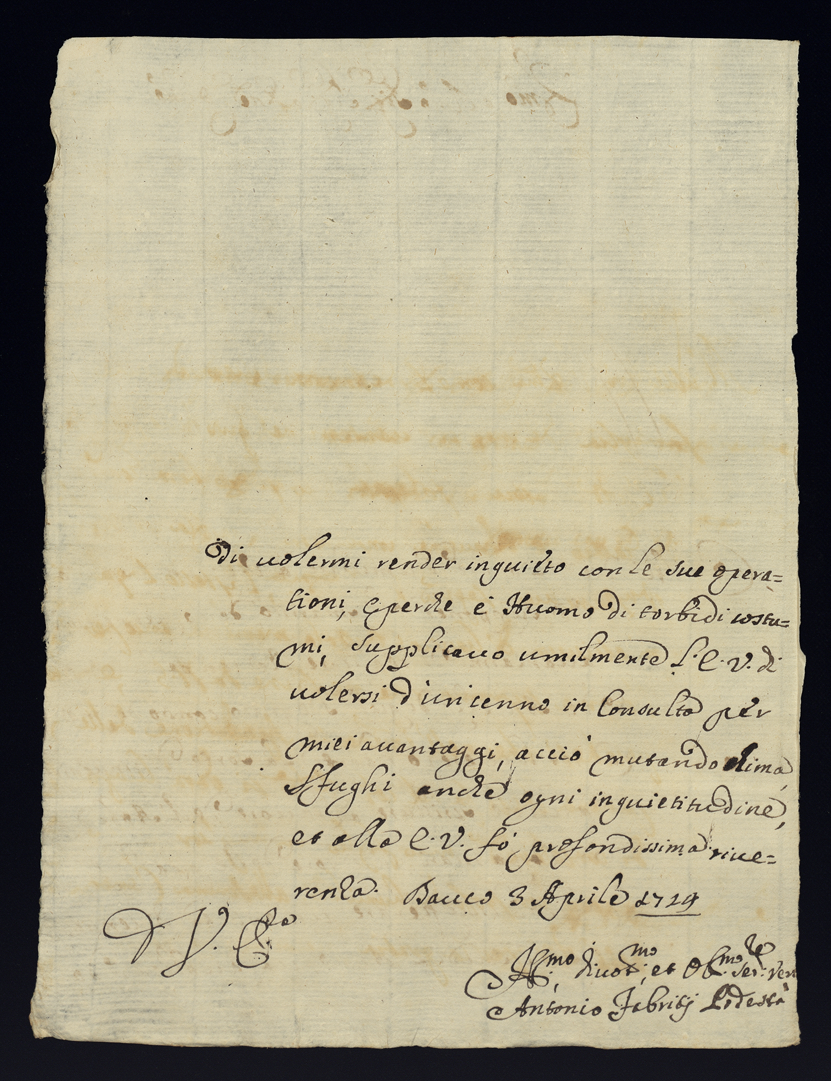 di volermi render inquieto con le sue opera=
tioni, e perche è Huomo di torbidi costu=
mi, supplicavo umilmente l'E. V. di
volersi d'un cenno in Consulta per
miei avantaggi, acciò mutando clima,
sfughi anche ogni inquietitudine,
et alla E. V. fò profondissima rive=
renza. Bacco 3 Aprile 1719
D V. E.
Um.mo divot.mo, et Ob.mo Ser.re Vero
Antonio Fabritij Podestà